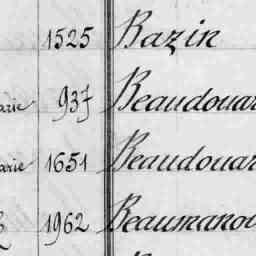 1525 Bazin
arie 937 Beaudouar
arie 1651 Beaudouar
1962 Beaumanoi